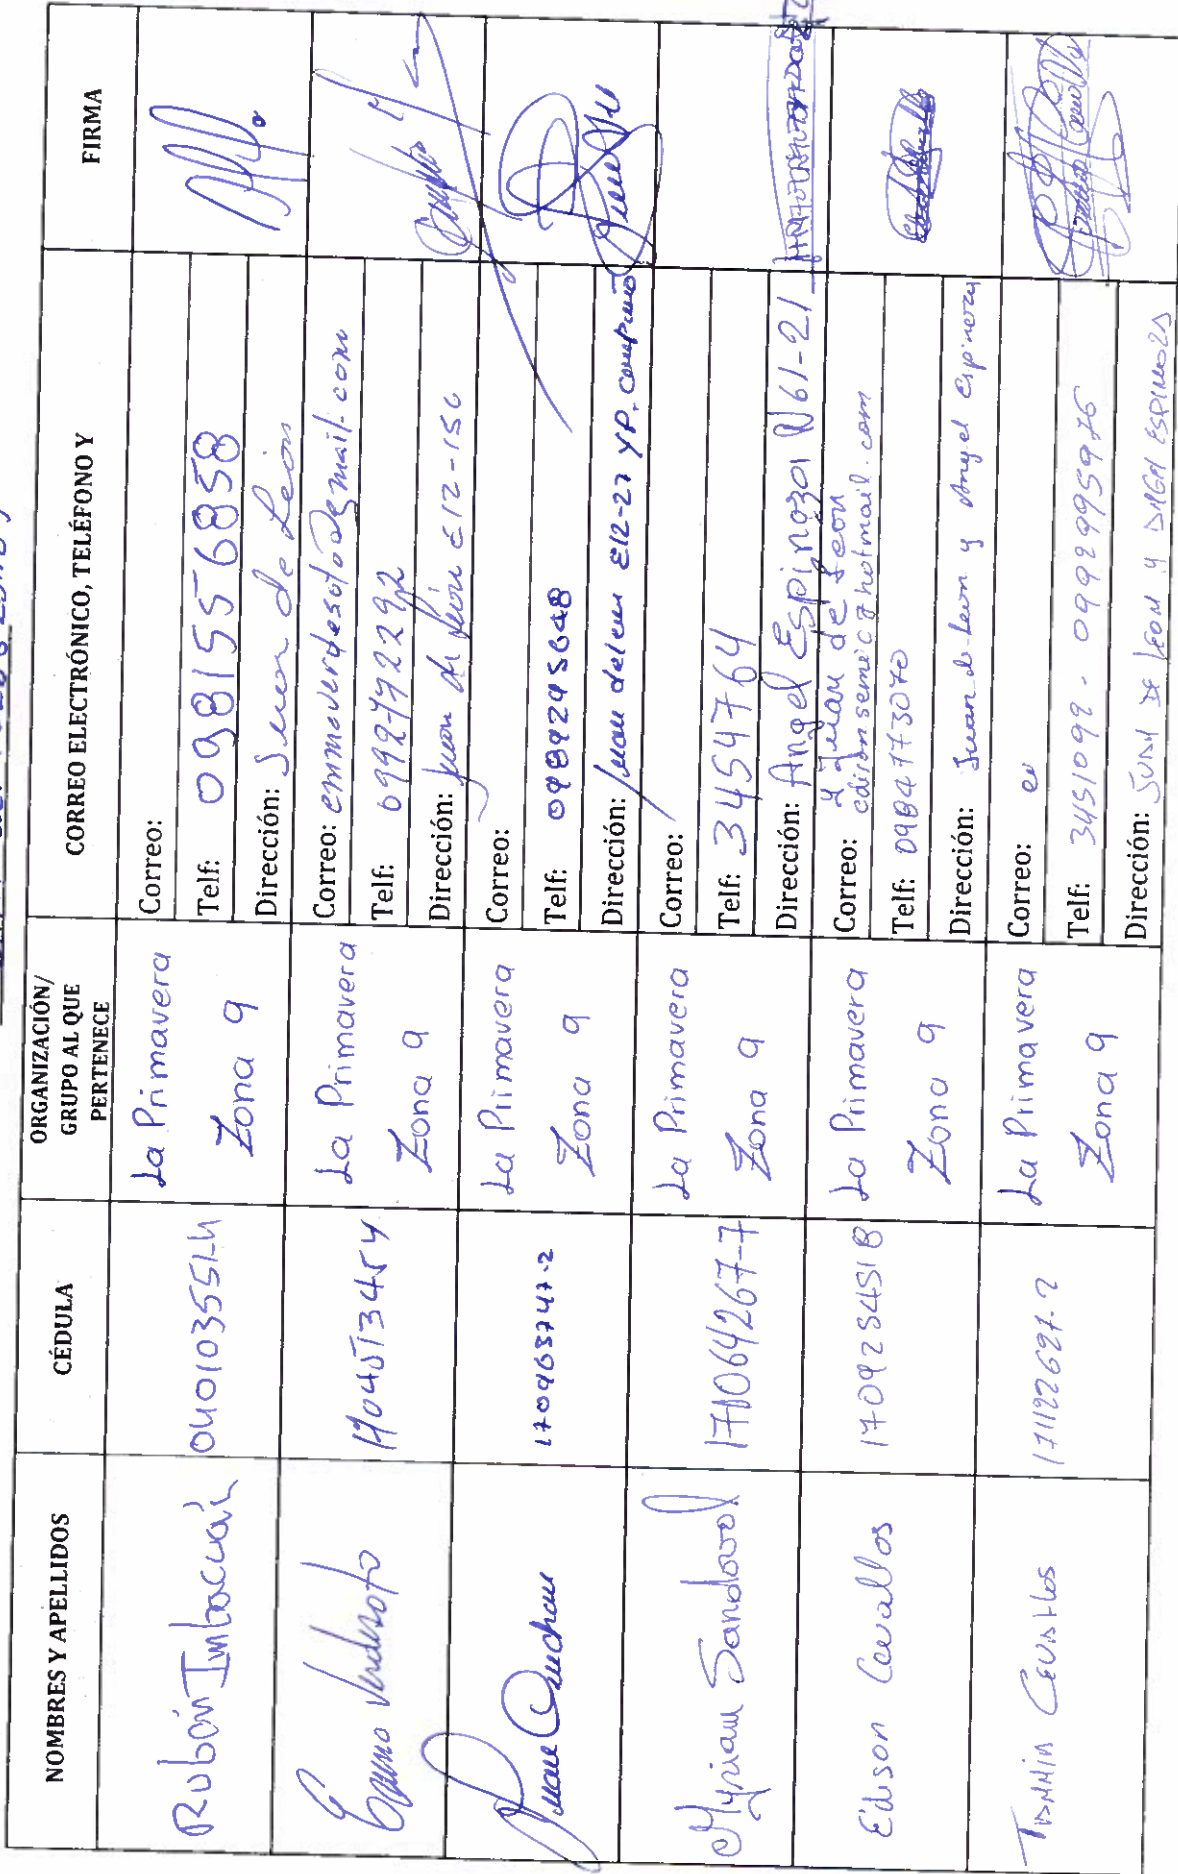 NOMBRES Y APELLIDOS
CÉDULA
ORGANIZACIÓN/
GRUPO AL QUE
PERTENECE
CORREO ELECTRÓNICO, TELÉFONO Y
FIRMA
Rubén Imbacuán
La Primavera
Zona 9
Correo:
Telf: 0981556858
Dirección: Juan de León
Emma Verdesoto
1704513454
La Primavera
Zona 9
Correo: emmaverdesoto@gmail.com
Telf:
Dirección: Juan de León E12-156
1709463747-2
La Primavera
Zona 9
Correo:
Telf: 0989295648
Dirección: Juan de León E12-27 y P.
Myriam Sandoval
171064267-7
La Primavera
Zona 9
Correo:
Telf: 34547764
Dirección: Angel Espinoza N61-21
y Juan de Leon
Edison Cevallos
1709254518
La Primavera
Zona 9
Correo: edisonsemic@hotmail.com
Telf: 0984773070
Dirección: Juan de Leon y Angel Espinoza
Tannia Cevallos
171122697-2
La Primavera
Zona 9
Correo:
Telf: 3451099 - 0999995976
Dirección: Juan de Leon y Angel Espinoza